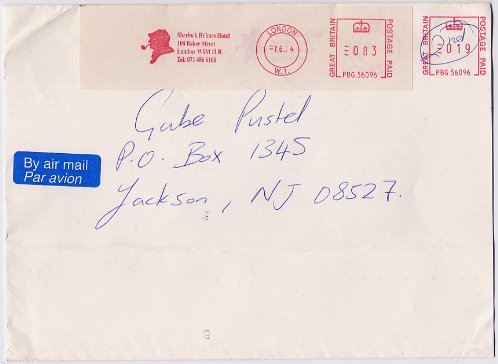 Sherlock Holmes Hotel
108 Baker Street
London W1M 1LB
Tel: 071 486 6161
LONDON
-7.6.14
W.1.
GREAT BRITAIN
083
POSTAGE PAID
PBG 56096
GREAT BRITAIN
019
POSTAGE PAID
PBG 56096
By air mail
Par avion
Gabe Pustel
P.O. Box 1345
Jackson, NJ 08527.